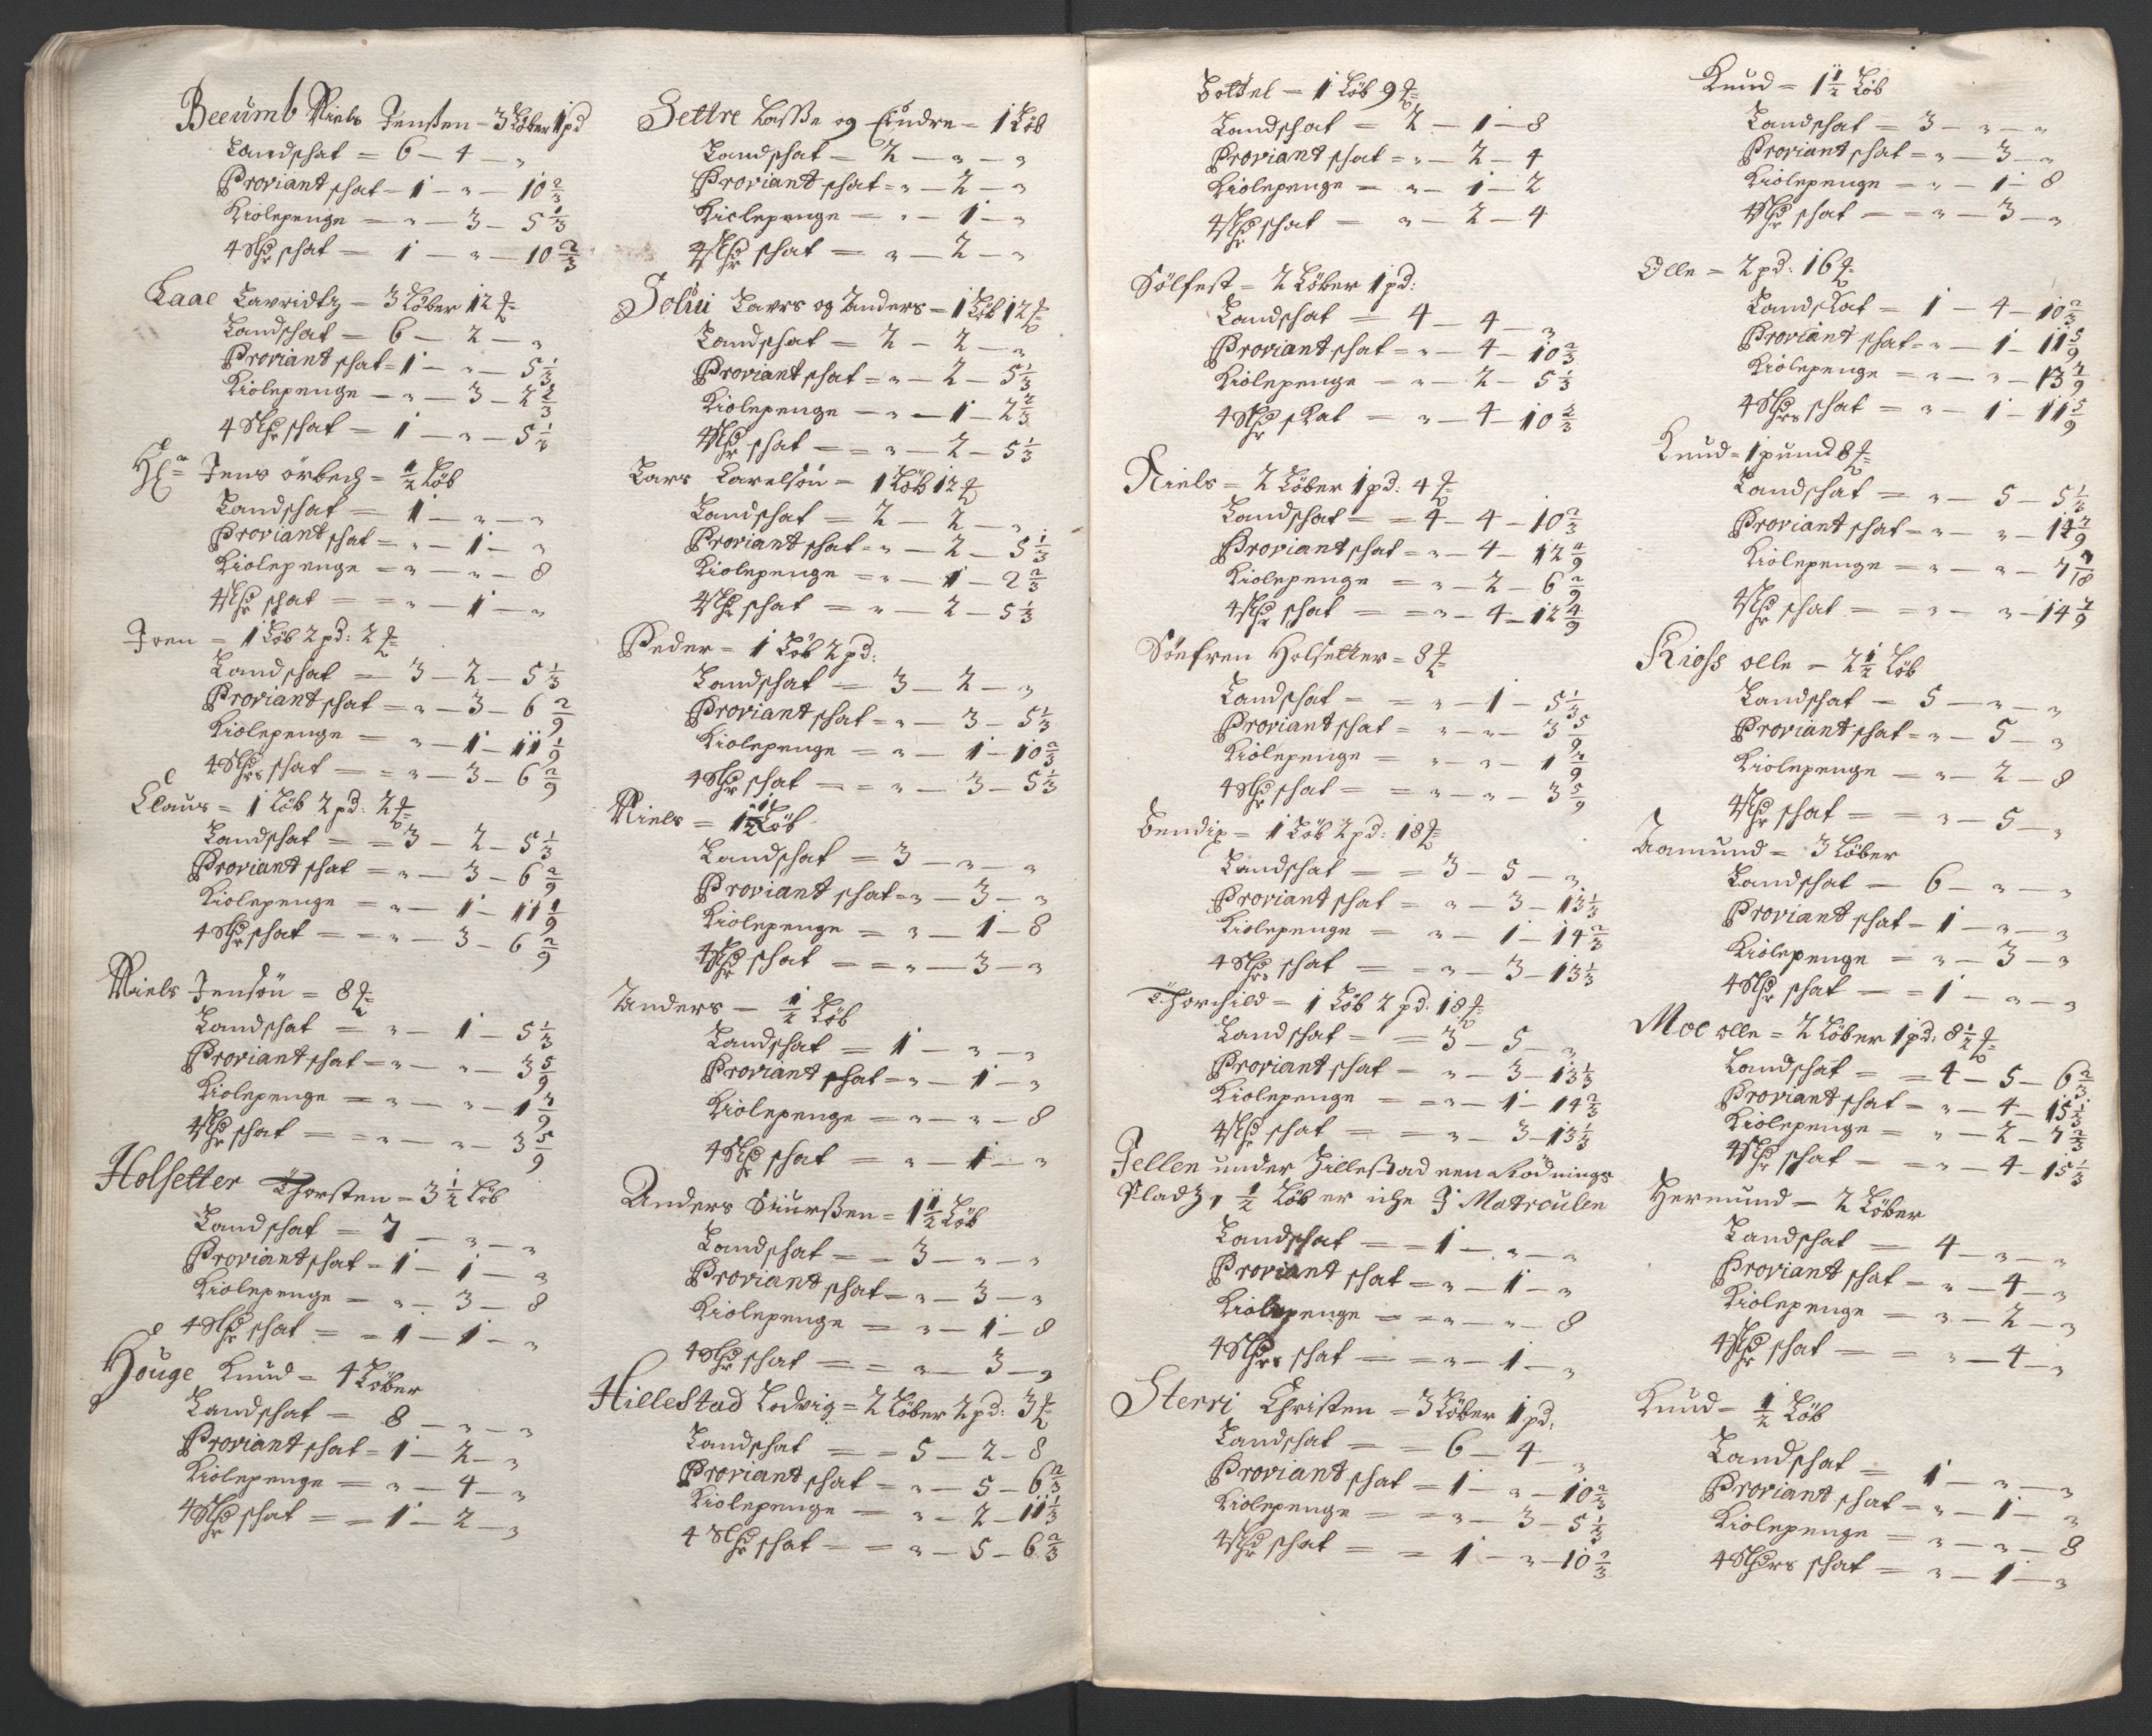 Beeumb Niels Jenssen = 3 Løber 1 pd
Landschat = 6 – 4 – „
Proviant schat = 1 – „ – 10 2/3
Kiolepenge = „ – 3 – 5 1/3
4 Rdr schat = 1 – „ – 10 2/3
Laae Lavridtz = 3 Løber 12
Landschat = 6 – 2 – „
Proviant schat = 1 – „ – 5 1/3
Kiolepenge = „ – 3 – 2 2/3
4 Rdr schat = 1 – „ – 5 1/3
Hr Jens örbech = 1/2 Løb
Landschat = 1 – „ – „
Proviant schat = „ – 1 – „
Kiolepenge = „ – „ – 8
4 Rdr schat = „ – 1 – „
Iven = 1 Løb 2 pd: 2
Landschat = 3 – 2 – 5 1/3
Proviant schat = „ – 3 – 6 2/9
Kiolepenge = „ – 1 – 11 1/9
4 Rdrs schat = „ – 3 – 6 2/9
Claus = 1 Løb 2 pd: 2
Landschat = 3 – 2 – 5 1/3
Proviant schat = „ – 3 – 6 2/9
Kiolepenge = „ – 1 – 11 1/9
4 Rdr schat = „ – 3 – 6 2/9
Niels Jensön = 8
Landschat = „ – 1 – 5 1/3
Proviant schat = „ – „ – 3 5/9
Kiolepenge = „ – „ – 1 7/9
4 Rdr schat = „ – „ – 3 5/9
Holsetter Thorsten = 3 1/2 Løb
Landschat = 7 – „ – „
Proviant schat = 1 – 1 – „
Kiolepenge = „ – 3 – 8
4 Rdr schat = 1 – 1 – „
Houge Knud = 4 Løber
Landschat = 8 – „ – „
Proviant schat = 1 – 2 – „
Kiolepenge = „ – 4 – „
4 Rdr schat = 1 – 2 – „
Settre Lasse og Eindre = 1 Løb
Landschat = 2 – „ – „
Proviant schat = „ – 2 – „
Kiolepenge = „ – 1 – „
4 Rdr schat = „ – 2 – „
Solui Lavrs og Anders = 1 Løb 12
Landschat = 2 – 2 – „
Proviant schat = „ – 2 – 5 1/3
Kiolepenge = „ – 1 – 2 2/3
4 Rdr schat = „ – 2 – 5 1/3
Lars Carelsön = 1 Løb 12
Landschat = 2 – 2 – „
Proviant schat = „ – 2 – 5 1/3
Kiolepenge = „ – 1 – 2 2/3
4 Rdr schat = „ – 2 – 5 1/3
Peder = 1 Løb 2 pd:
Landschat = 3 – 2 – „
Proviant schat = „ – 3 – 5 1/3
Kiolepenge = „ – 1 – 10 2/3
4 Rdr schat = „ – 3 – 5 1/3
Niels = 1 1/2 Løb
Landschat = 3 – „ – „
Proviant schat = „ – 3 – „
Kiolepenge = „ – 1 – 8
4 Rdr schat = „ – 3 – „
Anders = 1/2 Løb
Landschat = 1 – „ – „
Proviant schat = „ – 1 – „
Kiolepenge = „ – „ – 8
4 Rdr schat = „ – 1 – „
Anders Siurssen = 1 1/2 Løb
Landschat = 3 – „ – „
Proviant schat = „ – 3 – „
Kiolepenge = „ – 1 – 8
4 Rdr schat = „ – 3 – „
Hillestad Lodvig = 2 Løber 2 pd: 3
Landschat = 5 – 2 – 8
Proviant schat = „ – 5 – 6 2/3
Kiolepenge = „ – 2 – 11 1/3
4 Rdr schat = „ – 5 – 6 2/3
Bottel = 1 Løb 9
Landschat = 2 – 1 – 8
Proviant schat = „ – 2 – 4
Kiolepenge = „ – 1 – 2
4 Rdr schat = „ – 2 – 4
Sölfest = 2 Løber 1 pd:
Landschat = 4 – 4 – „
Proviant schat = „ – 4 – 10 2/3
Kiolepenge = „ – 2 – 5 1/3
4 Rdr skat = „ – 4 – 10 2/3
Niels = 2 Løber 1 pd: 4
Landschat = 4 – 4 – 10 2/3
Proviant schat = „ – 4 – 12 4/9
Kiolepenge = „ – 2 – 6 2/9
4 Rdr schat = „ – 4 – 12 4/9
Söefren Holsetter = 8
Landschat = „ – 1 – 5 1/3
Proviant schat = „ – „ – 3 5/9
Kiolepenge = „ – „ – 1 7/9
4 Rdr schat = „ – „ – 3 5/9
Bendix = 1 Løb 2 pd: 18
Landschat = 3 – 5 – „
Proviant schat = „ – 3 – 13 1/3
Kiolepenge = „ – 1 – 14 2/3
4 Rdrs schat = „ – 3 – 13 1/3
Thorchild = 1 Løb 2 pd. 18
Landschat = 3 – 5 – „
Proviant schat = „ – 3 – 13 1/3
Kiolepenge = „ – 1 – 14 2/3
4 Rdr schat = „ – 3 – 13 1/3
Jellen under Hillestad een Rödnings
Pladtz, 1/2 Løb er iche J Matroulen
Landschat = 1 – „ – „
Proviant schat = „ – 1 – „
Kiolepenge = „ – „ – 8
4 Rdrs schat = „ – 1 – „
Sterri Christen = 3 Løber 1 pd:
Landschat = 6 – 4 – „
Proviant schat = 1 – „ – 10 2/3
Kiolepenge = „ – 3 – 5 1/3
4 Rdr schat = 1 – „ – 10 2/3
Knud = 1 1/2 Løb
Landschat = 3 – „ – „
Proviant schat = „ – 3 – „
Kiolepenge = „ – 1 – 8
4 Rdr schat = „ – 3 – „
Olle = 2 pd: 16
Landskat = 1 – 4 – 10 2/3
Proviant schat = „ – 1 – 11 5/9
Kiolepenge = „ – „ – 13 7/9
4 Rdrs schat = „ – 1 – 11 5/9
Knud = 1 pund 8
Landschat = „ – 5 – 5 1/3
Proviant schat = „ – „ – 14 2/9
Kiolepenge = „ – „ – 7 1/18
4 Rdr schat = „ – „ – 14 2/9
Kioss olle = 2 1/2 Løb
Landschat = 5 – „ – „
Proviant schat = „ – 5 – „
Kiolepenge = „ – 2 – 8
4 Rdr schat = „ – 5 – „
Aamund = 3 Løber
Landschat = 6 – „ – „
Proviant schat = 1 – „ – „
Kiolepenge = „ – 3 – „
4 Rdr schat = 1 – „ – „
Moe olle = 2 Løber 1 pd: 8 1/2
Landschat = 4 – 5 – 6 2/3
Proviant schat = „ – 4 – 15 1/3
Kiolepenge = „ – 2 – 7 2/3
4 Rdr schat = „ – 4 – 15 1/3
Hermund = 2 Løber
Landschat = 4 – „ – „
Proviant schat = „ – 4 – „
Kiolepenge = „ – 2 – „
4 Rdr schat = „ – 4 – „
Knud = 1/2 Løb
Landschat = 1 – „ – „
Proviant schat = „ – 1 – „
Kiolepenge = „ – „ – 8
4 Rdrs schat = „ – 1 – „